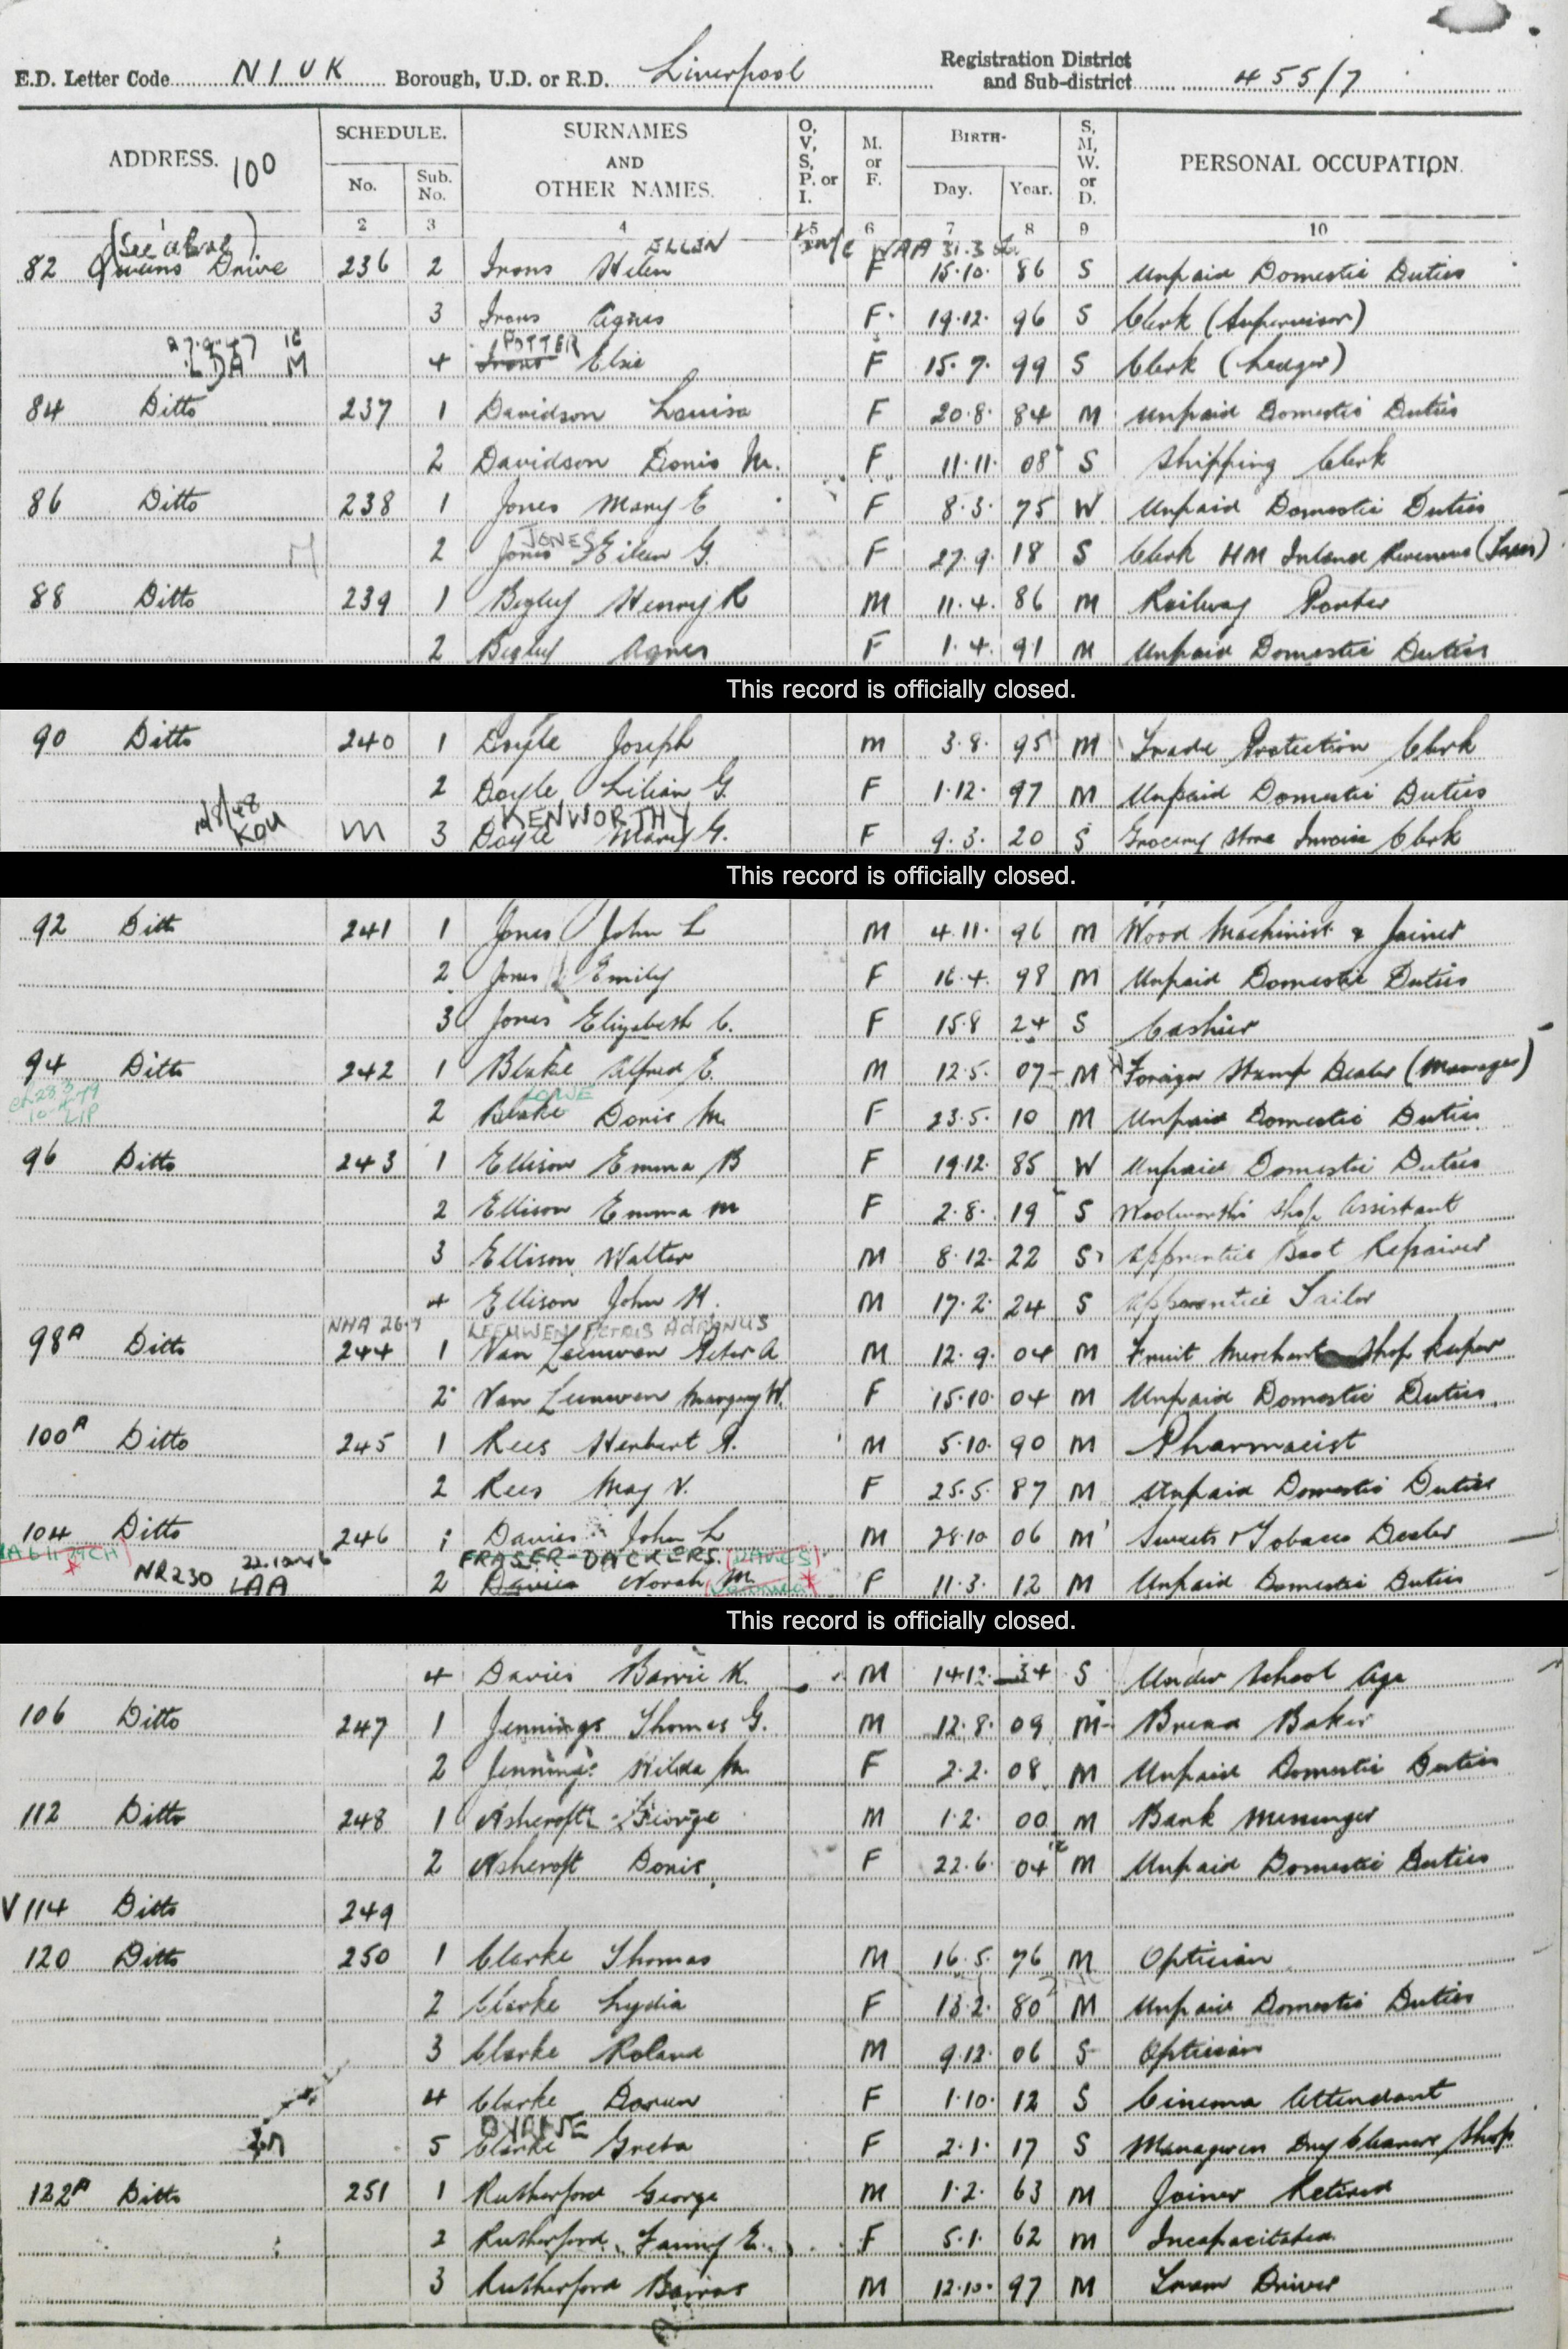 E.D. Letter Code NIUK Borough, U.D. or R.D. Liverpool Registration District and Sub-district 455/7
ADDRESS. 100 SCHEDULE. No. Sub. No. SURNAMES AND OTHER NAMES. O, V, S, P. or I. M. or F. BIRTH- Day. Year. S, M, W. or D. PERSONAL OCCUPATION.
2 3 4 5 6 7 8 9 10
(See ) ELLEN WAA 31.3
82 Queens Drive 236 2 Irons Helen F 15.10. 86 S Unpaid Domestic Duties
3 Irons Agnes F 19.12. 96 S Clerk (Supervisor)
27.9.47 LDA M POTTER
4 Irons Elsie F 15.7. 99 S Clerk (Ledger)
84 Ditto 237 1 Davidson Louisa F 20.8. 84 M Unpaid Domestic Duties
2 Davidson Doris M. F 11.11. 08 S Shipping Clerk
86 Ditto 238 1 Jones Mary E F 8.3. 75 W Unpaid Domestic Duties
JONES
M 2 Jones Eileen G. F 27.9. 18 S Clerk HM Inland Revenue (Taxes)
88 Ditto 239 1 Begley Henry R M 11.4. 86 M Railway Porter
2 Begley Agnes F 1.4. 91 M Unpaid Domestic Duties
This record is officially closed.
90 Ditto 240 1 Doyle Joseph M 3.8. 95 M Trade Protection Clerk
2 Doyle Lilian G. F 1.12. 97 M Unpaid Domestic Duties
KENWORTHY
KOU M 3 Doyle Mary G. F 9.3. 20 S Grocery Store Invoice Clerk
This record is officially closed.
92 Ditto 241 1 Jones John L M 4.11. 96 M Wood Machinist & Joiner
2 Jones Emily F 16.4. 98 M Unpaid Domestic Duties
3 Jones Elizabeth C. F 15.8 24 S Cashier
94 Ditto 242 1 Blake Alfred E. M 12.5. 07 M Foreign Stamp Dealer (Manager)
LOWE
LIP 2 Blake Doris M. F 23.5. 10 M Unpaid Domestic Duties
96 Ditto 243 1 Ellison Emma B F 19.12. 85 W Unpaid Domestic Duties
2 Ellison Emma M F 2.8. 19 S Woolworths Shop Assistant
3 Ellison Walter M 8.12. 22 S Apprentice Boot Repairer
4 Ellison John H. M 17.2. 24 S Apprentice Tailor
NHA 26. LEEUWEN PETRUS ADRIANUS
98A Ditto 244 1 Van Leeuwen Peter A M 12.9. 04 M Fruit Merchant Shop Keeper
2 Van Leeuwen Margery W. F 15.10. 04 M Unpaid Domestic Duties
100A Ditto 245 1 Rees Herbert A. M 5.10. 90 M Pharmacist
2 Rees May V. F 25.5. 87 M Unpaid Domestic Duties
104 Ditto 246 1 Davies John L M 28.10 06 M Sweets & Tobacco Dealer
FRASER-DACKERS (DAVIES)
NR230 LAA 2 Davies Norah M F 11.3. 12 M Unpaid Domestic Duties
This record is officially closed.
4 Davies Barrie K. M 14.12. 34 S Under School Age
106 Ditto 247 1 Jennings Thomas G. M 12.8. 09 M Bread Baker
2 Jennings Hilda M. F 2.2. 08 M Unpaid Domestic Duties
112 Ditto 248 1 Ashcroft George M 1.2. 00 M Bank Messenger
2 Ashcroft Doris F 22.6. 04 M Unpaid Domestic Duties
V 114 Ditto 249
120 Ditto 250 1 Clarke Thomas M 16.5. 76 M Optician
2 Clarke Lydia F 13.2. 80 M Unpaid Domestic Duties
3 Clarke Roland M 9.12. 06 S Optician
4 Clarke Doreen F 1.10. 12 S Cinema Attendant
BYRNE
5 Clarke Greta F 2.1. 17 S Manageress Dry Cleaners Shop
122A Ditto 251 1 Rutherford George M 1.2. 63 M Joiner Retired
2 Rutherford Fanny E. F 5.1. 62 M Incapacitated
3 Rutherford Barras M 12.10. 97 M Tram Driver